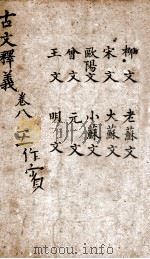 柳文 老蘇文
宋文 大蘇文
歐陽文 小蘇文
曾文 元文
王文 明文
古文釋義 卷八 作賓